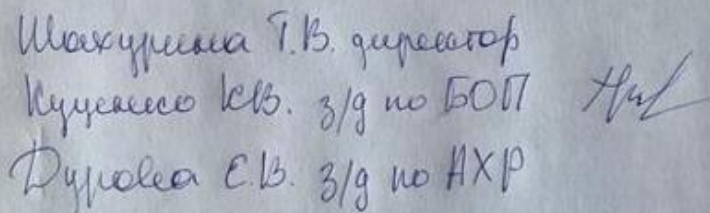 Шахурина Т.В. директор
Куценко К.В. з/д по БОП
Дурова Е.В. з/д по АХР